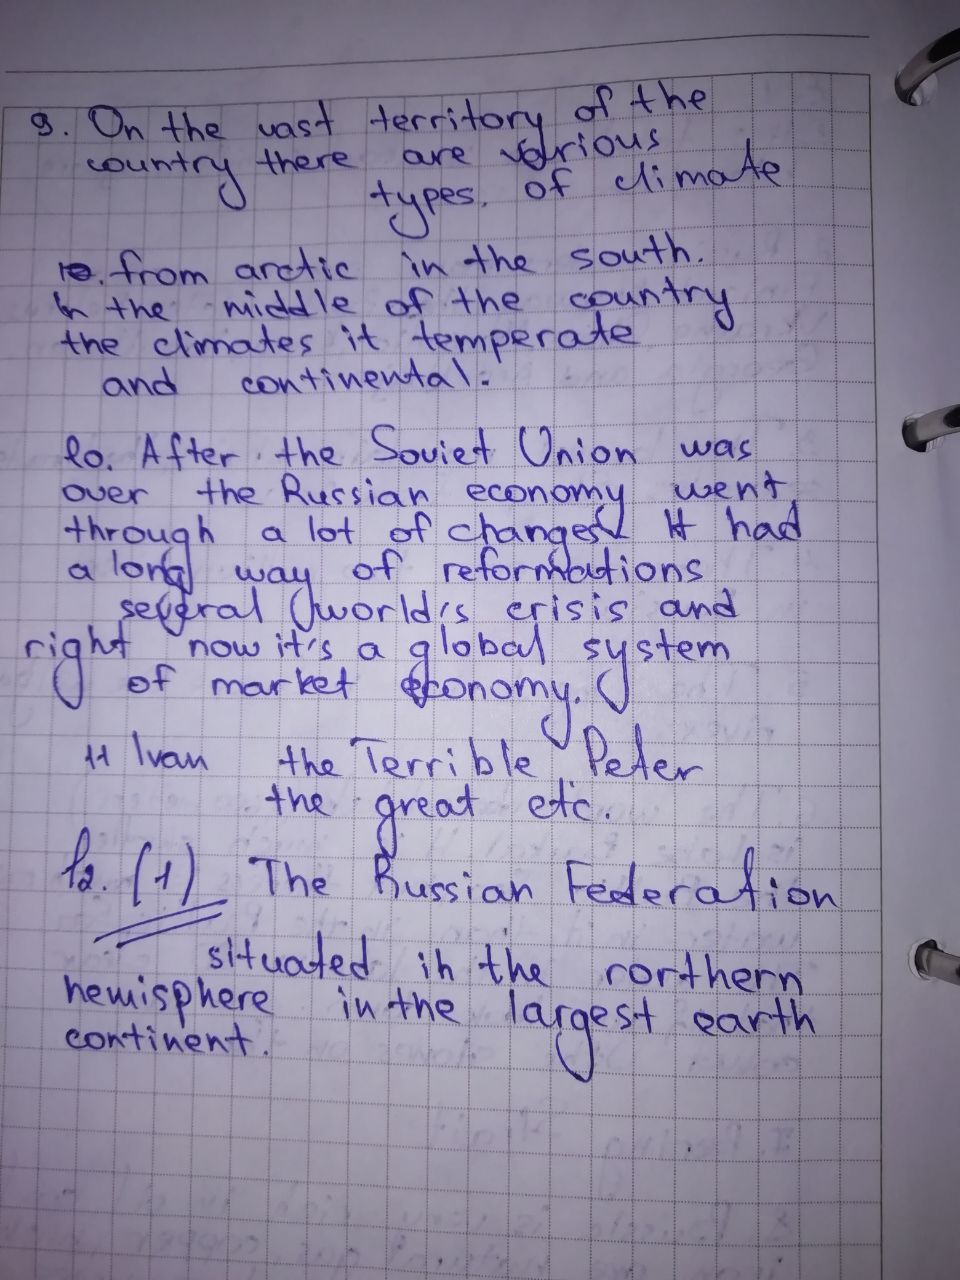 9. On the vast territory of the
country there are various
types. of climate
10. from arctic in the south.
In the middle of the country
the climates it temperate
and continental.
10. After the Soviet Union was
over the Russian economy went
through a lot of changes. It had
a long way of reformations
several world's crisis and
right now it's a global system
of market economy.
11 Ivan the Terrible Peter
the great etc.
12. (1) The Russian Federation
situated in the northern
hemisphere in the largest earth
continent.